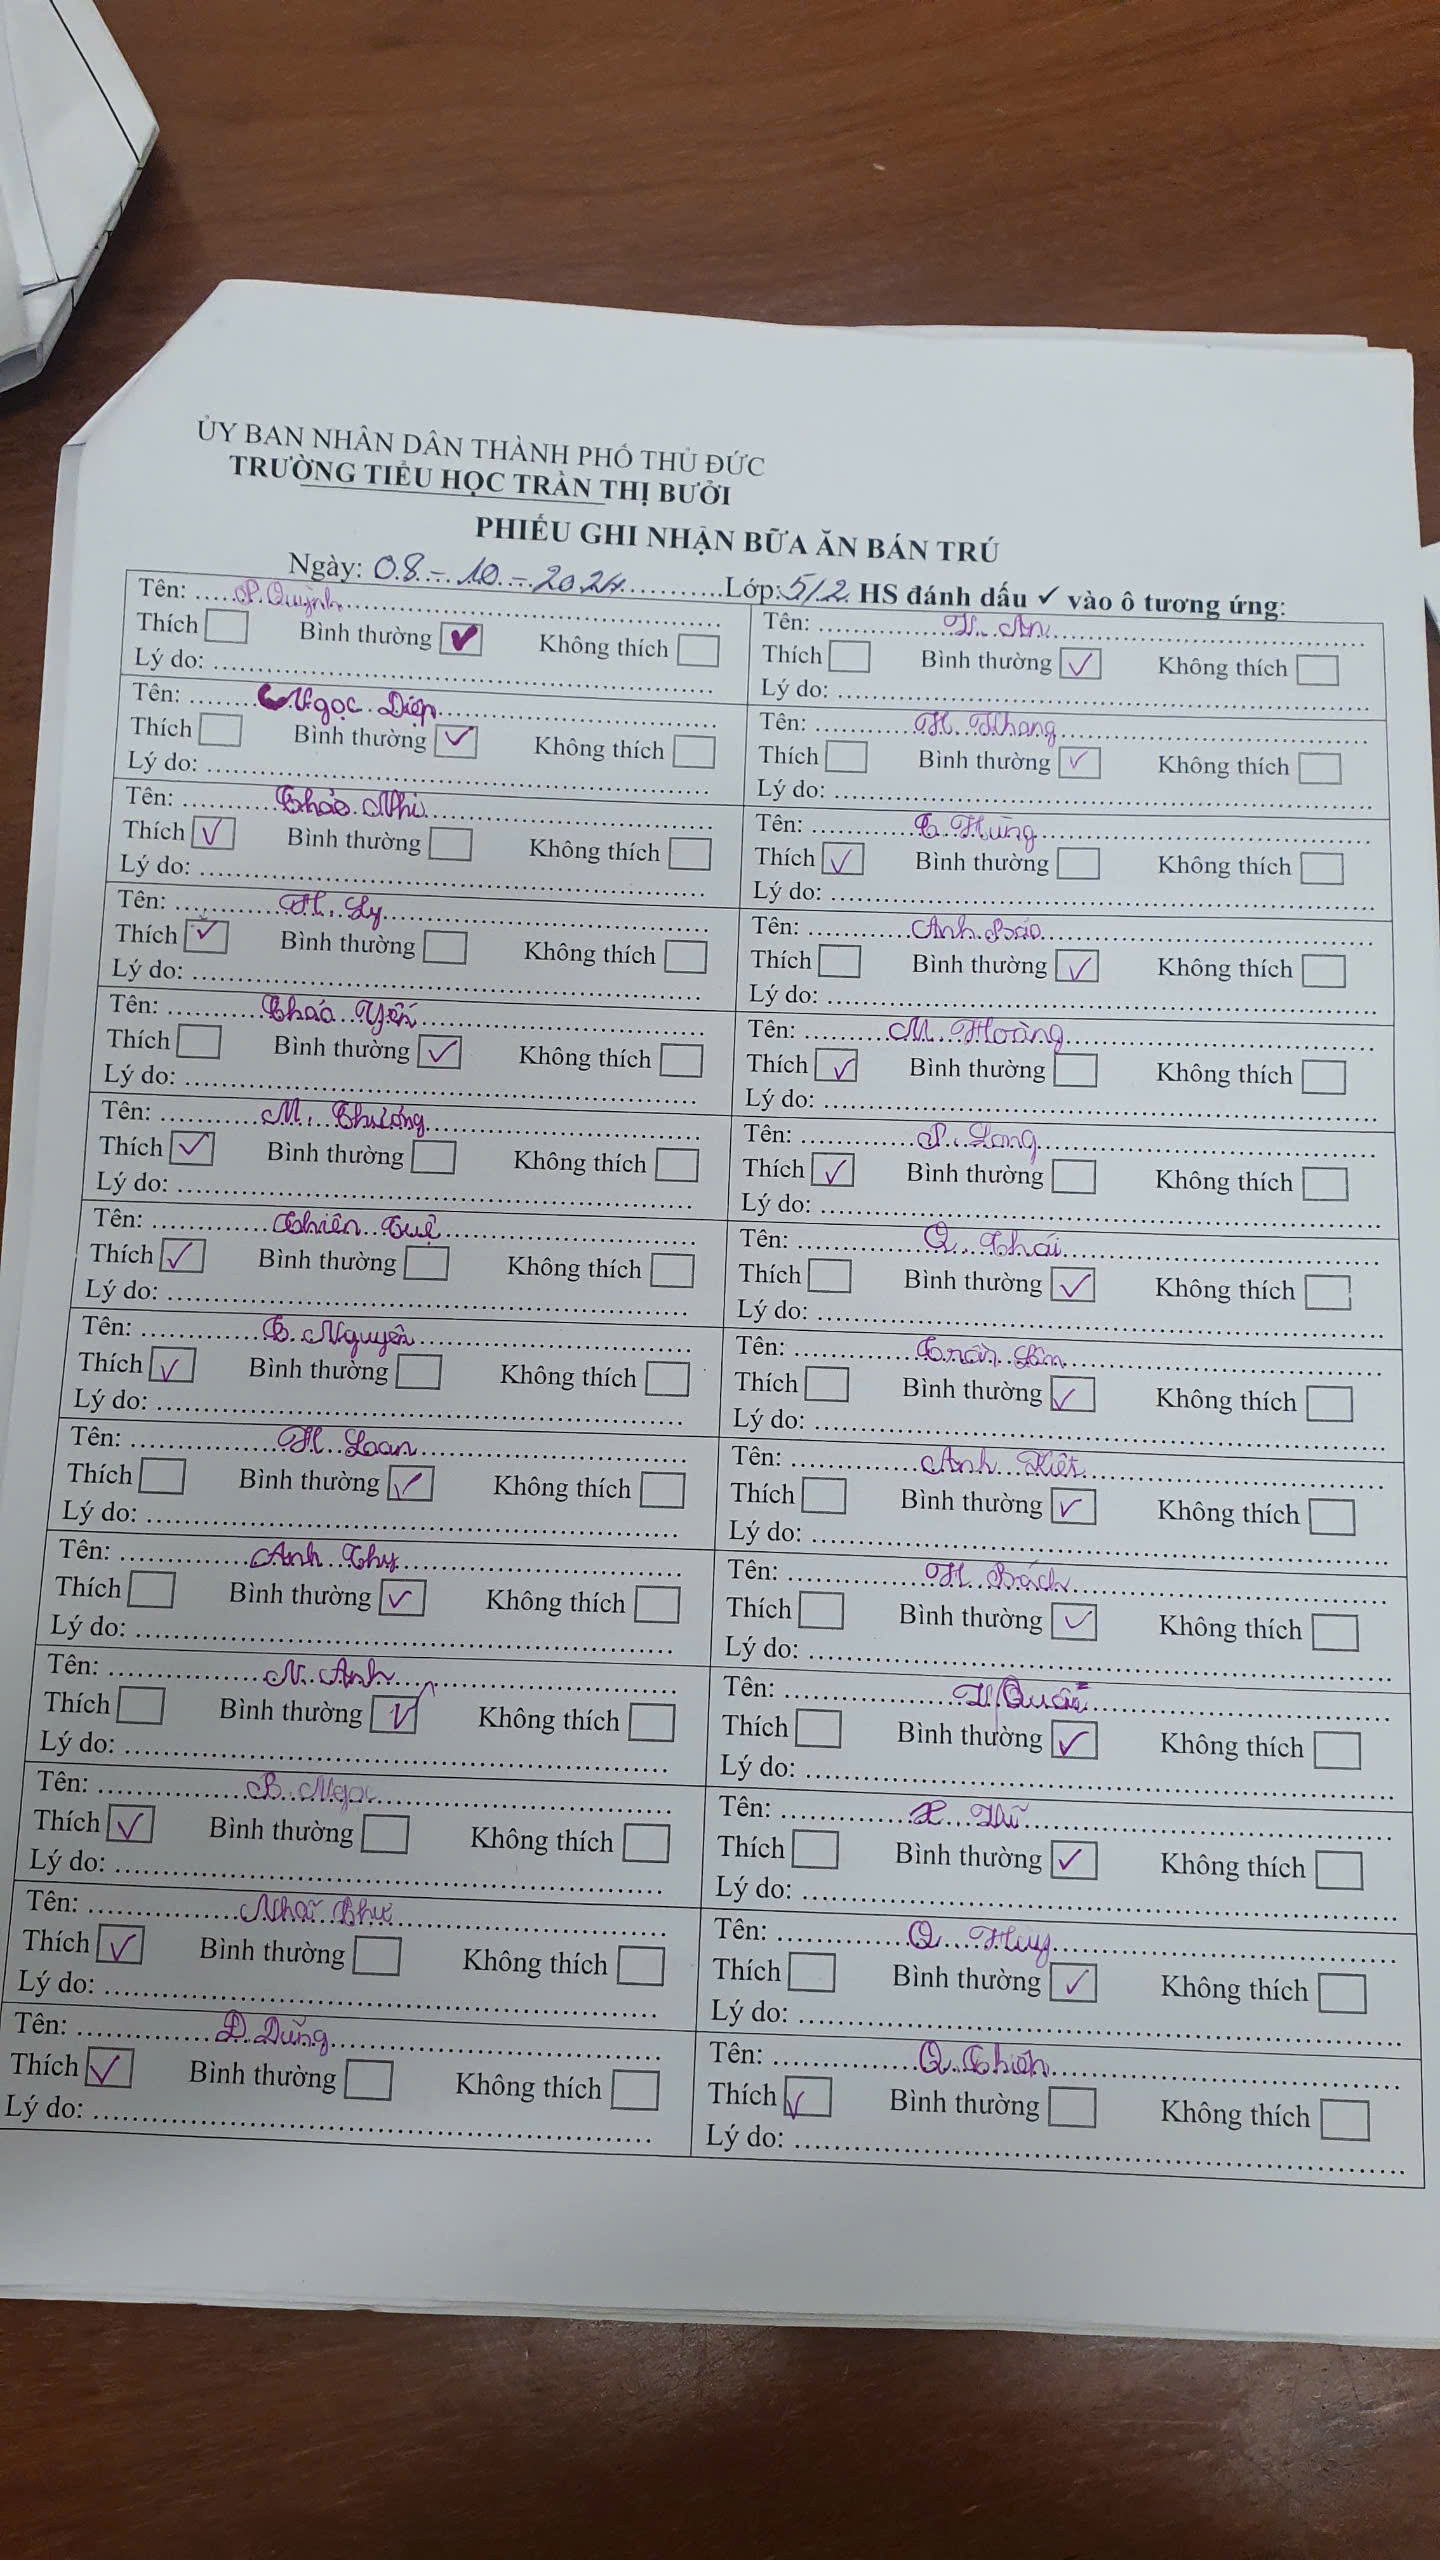 ỦY BAN NHÂN DÂN THÀNH PHỐ THỦ ĐỨC
TRƯỜNG TIỂU HỌC TRẦN THỊ BƯỞI
PHIẾU GHI NHẬN BỮA ĂN BÁN TRÚ
Ngày: 08-10-2024 Lớp: 5/2 HS đánh dấu ✓ vào ô tương ứng:
Tên: P. Quỳnh
Thích Bình thường ✓ Không thích
Lý do:
Tên: H. An
Thích Bình thường ✓ Không thích
Lý do:
Tên: Ngọc Diệp
Thích Bình thường ✓ Không thích
Lý do:
Tên: H. Khang
Thích Bình thường ✓ Không thích
Lý do:
Tên: Thảo Nhi
Thích ✓ Bình thường Không thích
Lý do:
Tên: T. Hưng
Thích ✓ Bình thường Không thích
Lý do:
Tên: H. Ly
Thích ✓ Bình thường Không thích
Lý do:
Tên: Anh Bảo
Thích Bình thường ✓ Không thích
Lý do:
Tên: Thảo Yến
Thích Bình thường ✓ Không thích
Lý do:
Tên: M. Hoàng
Thích ✓ Bình thường Không thích
Lý do:
Tên: M. Thương
Thích ✓ Bình thường Không thích
Lý do:
Tên: P. Long
Thích ✓ Bình thường Không thích
Lý do:
Tên: Thiên Tuệ
Thích ✓ Bình thường Không thích
Lý do:
Tên: Q. Thái
Thích Bình thường ✓ Không thích
Lý do:
Tên: T. Nguyên
Thích ✓ Bình thường Không thích
Lý do:
Tên: Trần Lâm
Thích Bình thường ✓ Không thích
Lý do:
Tên: H. Loan
Thích Bình thường ✓ Không thích
Lý do:
Tên: Anh Kiệt
Thích Bình thường ✓ Không thích
Lý do:
Tên: Anh Thy
Thích Bình thường ✓ Không thích
Lý do:
Tên: H. Bách
Thích Bình thường ✓ Không thích
Lý do:
Tên: N. Anh
Thích Bình thường ✓ Không thích
Lý do:
Tên: Quân
Thích Bình thường ✓ Không thích
Lý do:
Tên: B. Ngọc
Thích ✓ Bình thường Không thích
Lý do:
Tên:
Thích Bình thường ✓ Không thích
Lý do:
Tên: Nhã Thư
Thích ✓ Bình thường Không thích
Lý do:
Tên: Q. Huy
Thích Bình thường ✓ Không thích
Lý do:
Tên: Đ. Dũng
Thích ✓ Bình thường Không thích
Lý do:
Tên: Q. Thiên
Thích ✓ Bình thường Không thích
Lý do: